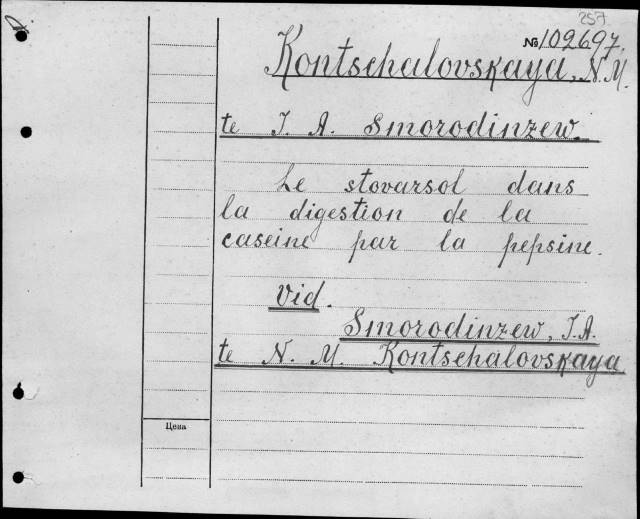 257
№ 102697.
Kontschalovskaya, N. M.
te J. A. Smorodinzew.
Le stovarsol dans
la digestion de la
caseine par la pepsine.
Vid.
Smorodinzew, J. A.
te N. M. Kontschalovskaya
Цена